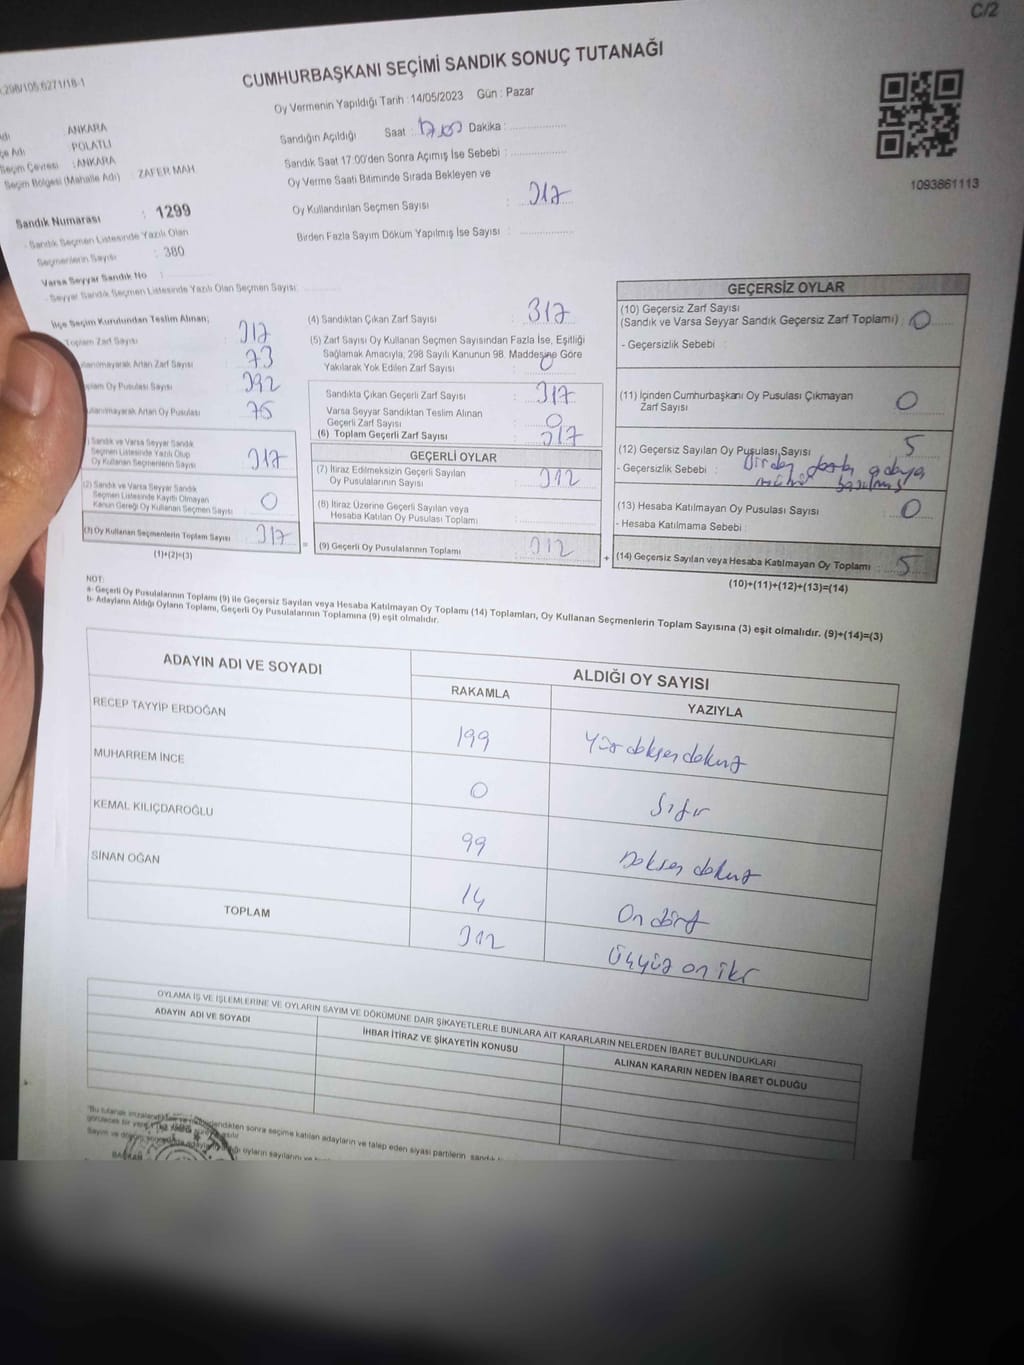 C/2
CUMHURBAŞKANI SEÇİMİ SANDIK SONUÇ TUTANAĞI
298/105.6271/18-1
Oy Vermenin Yapıldığı Tarih : 14/05/2023 Gün : Pazar
ANKARA
POLATLI
Seçim Çevresi : ANKARA
Seçim Bölgesi (Mahalle Adı) : ZAFER MAH
Sandık Numarası : 1299
- Sandık Seçmen Listesinde Yazılı Olan
Seçmenlerin Sayısı : 380
Varsa Seyyar Sandık No :
- Seyyar Sandık Seçmen Listesinde Yazılı Olan Seçmen Sayısı:
Sandığın Açıldığı Saat : Dakika :
Sandık Saat 17:00'den Sonra Açılmış İse Sebebi :
Oy Verme Saati Bitiminde Sırada Bekleyen ve
Oy Kullandırılan Seçmen Sayısı : 317
Birden Fazla Sayım Döküm Yapılmış İse Sayısı :
1093861113
İlçe Seçim Kurulundan Teslim Alınan;
Toplam Zarf Sayısı : 317
Artan Zarf Sayısı : 73
Oy Pusulası Sayısı : 392
Artan Oy Pusulası : 75
(1) Sandık ve Varsa Seyyar Sandık
Seçmen Listesinde Yazılı Olup
Oy Kullanan Seçmenlerin Sayısı : 317
(2) Sandık ve Varsa Seyyar Sandık
Seçmen Listesinde Kayıtlı Olmayan
Kanun Gereği Oy Kullanan Seçmen Sayısı : 0
(3) Oy Kullanan Seçmenlerin Toplam Sayısı : 317
(1)+(2)=(3)
(4) Sandıktan Çıkan Zarf Sayısı : 317
(5) Zarf Sayısı Oy Kullanan Seçmen Sayısından Fazla İse, Eşitliği
Sağlamak Amacıyla, 298 Sayılı Kanunun 98. Maddesine Göre
Yakılarak Yok Edilen Zarf Sayısı : 0
Sandıkta Çıkan Geçerli Zarf Sayısı : 317
Varsa Seyyar Sandıktan Teslim Alınan
Geçerli Zarf Sayısı : 0
(6) Toplam Geçerli Zarf Sayısı : 317
GEÇERLİ OYLAR
(7) İtiraz Edilmeksizin Geçerli Sayılan
Oy Pusulalarının Sayısı : 312
(8) İtiraz Üzerine Geçerli Sayılan veya
Hesaba Katılan Oy Pusulası Toplamı :
(9) Geçerli Oy Pusulalarının Toplamı : 312
GEÇERSİZ OYLAR
(10) Geçersiz Zarf Sayısı
(Sandık ve Varsa Seyyar Sandık Geçersiz Zarf Toplamı) : 0
- Geçersizlik Sebebi :
(11) İçinden Cumhurbaşkanı Oy Pusulası Çıkmayan
Zarf Sayısı : 0
(12) Geçersiz Sayılan Oy Pusulası Sayısı : 5
- Geçersizlik Sebebi : Birden fazla adaya
mühür basılmış
(13) Hesaba Katılmayan Oy Pusulası Sayısı : 0
- Hesaba Katılmama Sebebi :
(14) Geçersiz Sayılan veya Hesaba Katılmayan Oy Toplamı : 5
(10)+(11)+(12)+(13)=(14)
NOT:
a- Geçerli Oy Pusulalarının Toplamı (9) ile Geçersiz Sayılan veya Hesaba Katılmayan Oy Toplamı (14) Toplamları, Oy Kullanan Seçmenlerin Toplam Sayısına (3) eşit olmalıdır. (9)+(14)=(3)
b- Adayların Aldığı Oyların Toplamı, Geçerli Oy Pusulalarının Toplamına (9) eşit olmalıdır.
ADAYIN ADI VE SOYADI
ALDIĞI OY SAYISI
RAKAMLA YAZIYLA
RECEP TAYYİP ERDOĞAN 199 Yüz doksan dokuz
MUHARREM İNCE 0 Sıfır
KEMAL KILIÇDAROĞLU 99 Doksan dokuz
SİNAN OĞAN 14 On dört
TOPLAM 312 Üçyüz on iki
OYLAMA İŞ VE İŞLEMLERİNE VE OYLARIN SAYIM VE DÖKÜMÜNE DAİR ŞİKAYETLERLE BUNLARA AİT KARARLARIN NELERDEN İBARET BULUNDUKLARI
ADAYIN ADI VE SOYADI
İHBAR İTİRAZ VE ŞİKAYETİN KONUSU
ALINAN KARARIN NEDEN İBARET OLDUĞU
sonra seçime katılan adayların ve talep eden siyasi partilerin
BAŞKAN